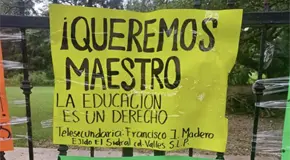 ¡QUEREMOS
MAESTRO
LA EDUCACION
ES UN DERECHO
Telesecundaria Francisco I. Madero
Ejido El Sidral cd. Valles S.L.P.